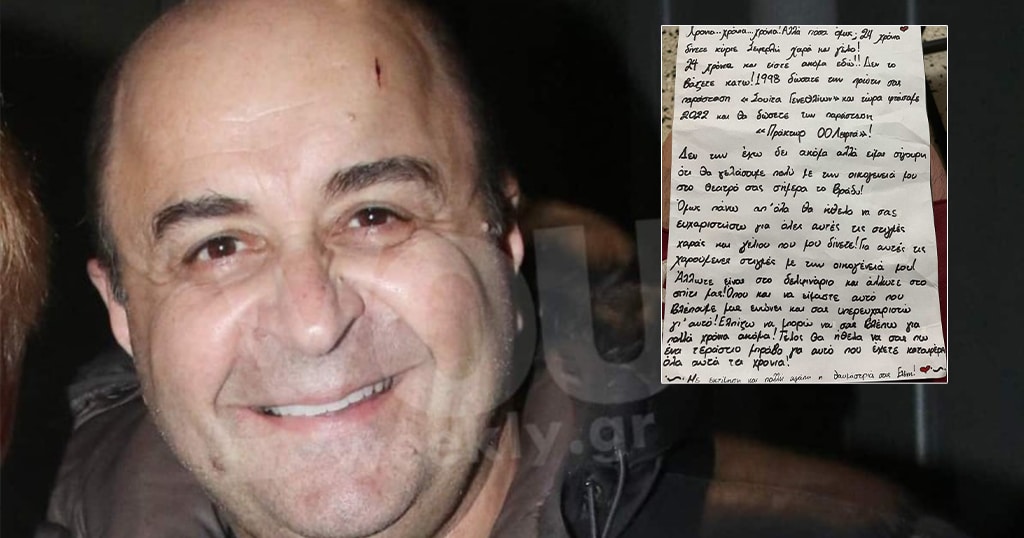 Χρόνια...χρόνια...χρόνια! Αλλά πόσα όμως; 24 χρόνια
δίνετε κύριε Σεφερλή χαρά και γέλιο!
24 χρόνια και είστε ακόμα εδώ!! Δεν το
βάζετε κάτω! 1998 δώσατε την πρώτη σας
παράσταση «Σουίτα Γενεθλίων» και τώρα φτάσαμε
2022 και θα δώσετε την παράσταση
«Πράκτωρ 00Λεφτά»!
Δεν την έχω δει ακόμα αλλά είμαι σίγουρη
ότι θα γελάσουμε πολύ με την οικογένειά μου
στο θέατρό σας σήμερα το βράδυ!
Όμως πάνω απ' όλα θα ήθελα να σας
ευχαριστήσω για όλες αυτές τις στιγμές
χαράς και γέλιου που μου δίνετε! Για αυτές τις
χαρούμενες στιγμές με την οικογένειά μου!
Άλλωτε είναι στο δελφινάριο και άλλωτε στο
σπίτι μας! Όπου και να είμαστε αυτό που
βλέπουμε μας ενώνει και σας υπερευχαριστώ
γι' αυτό! Ελπίζω να μπορώ να σας βλέπω για
πολλά χρόνια ακόμα! Τέλος θα ήθελα να σας πω
ένα τεράστιο μπράβο για αυτό που έχετε καταφέρει
όλα αυτά τα χρόνια!
Με εκτίμηση και πολλή αγάπη η θαυμάστρια σας
ekly.gr